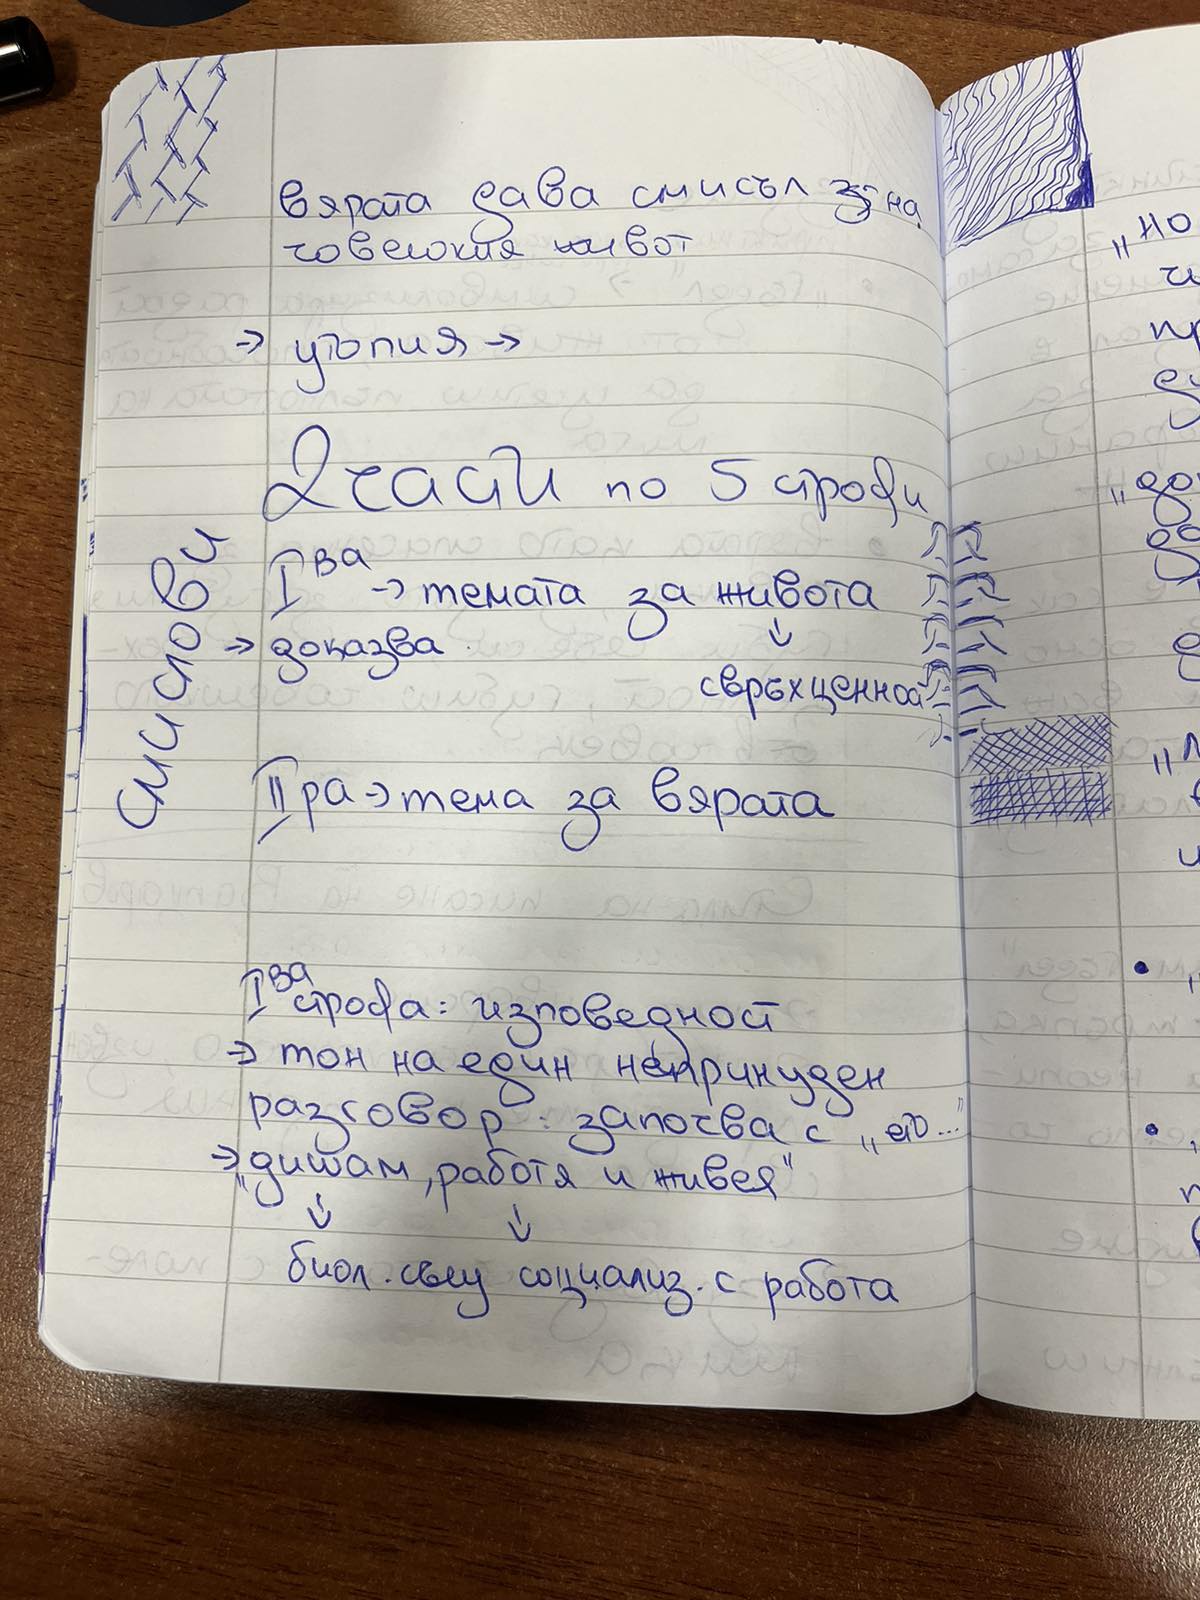 вярата дава смисъл на
човешкия живот
→ утопия →
2 части по 5 строфи
смислови
I ва → темата за живота
→ доказва ↓
свръхценност
II ра → тема за вярата
I ва строфа: изповедност
→ тон на един непринуден
разговор: започва с „ето..."
→ „дишам, работя и живея"
↓ ↓
биол. социализ. с работа
„но
„
„